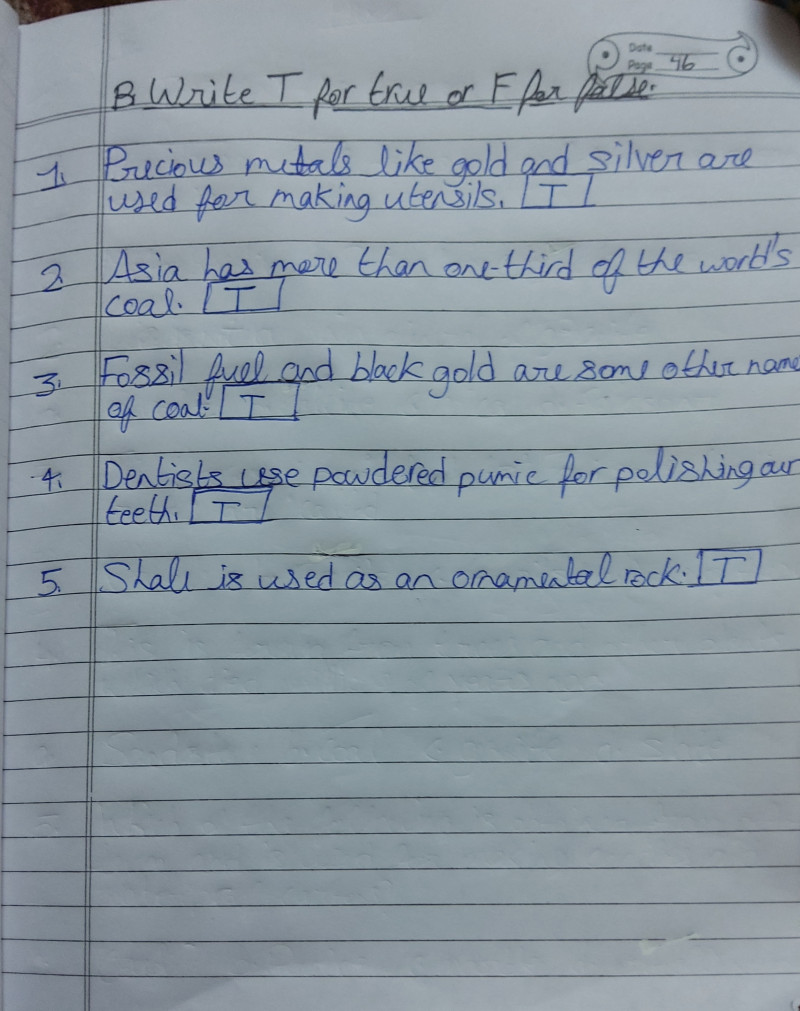 Date
Page 46
B Write T for true or F for false.
1. Precious metals like gold and silver are
used for making utensils. T
2. Asia has more than one-third of the world's
coal. T
3. Fossil fuel and black gold are some other name
of coal. T
4. Dentists use powdered pumic for polishing our
teeth. T
5. Shale is used as an ornamental rock. T